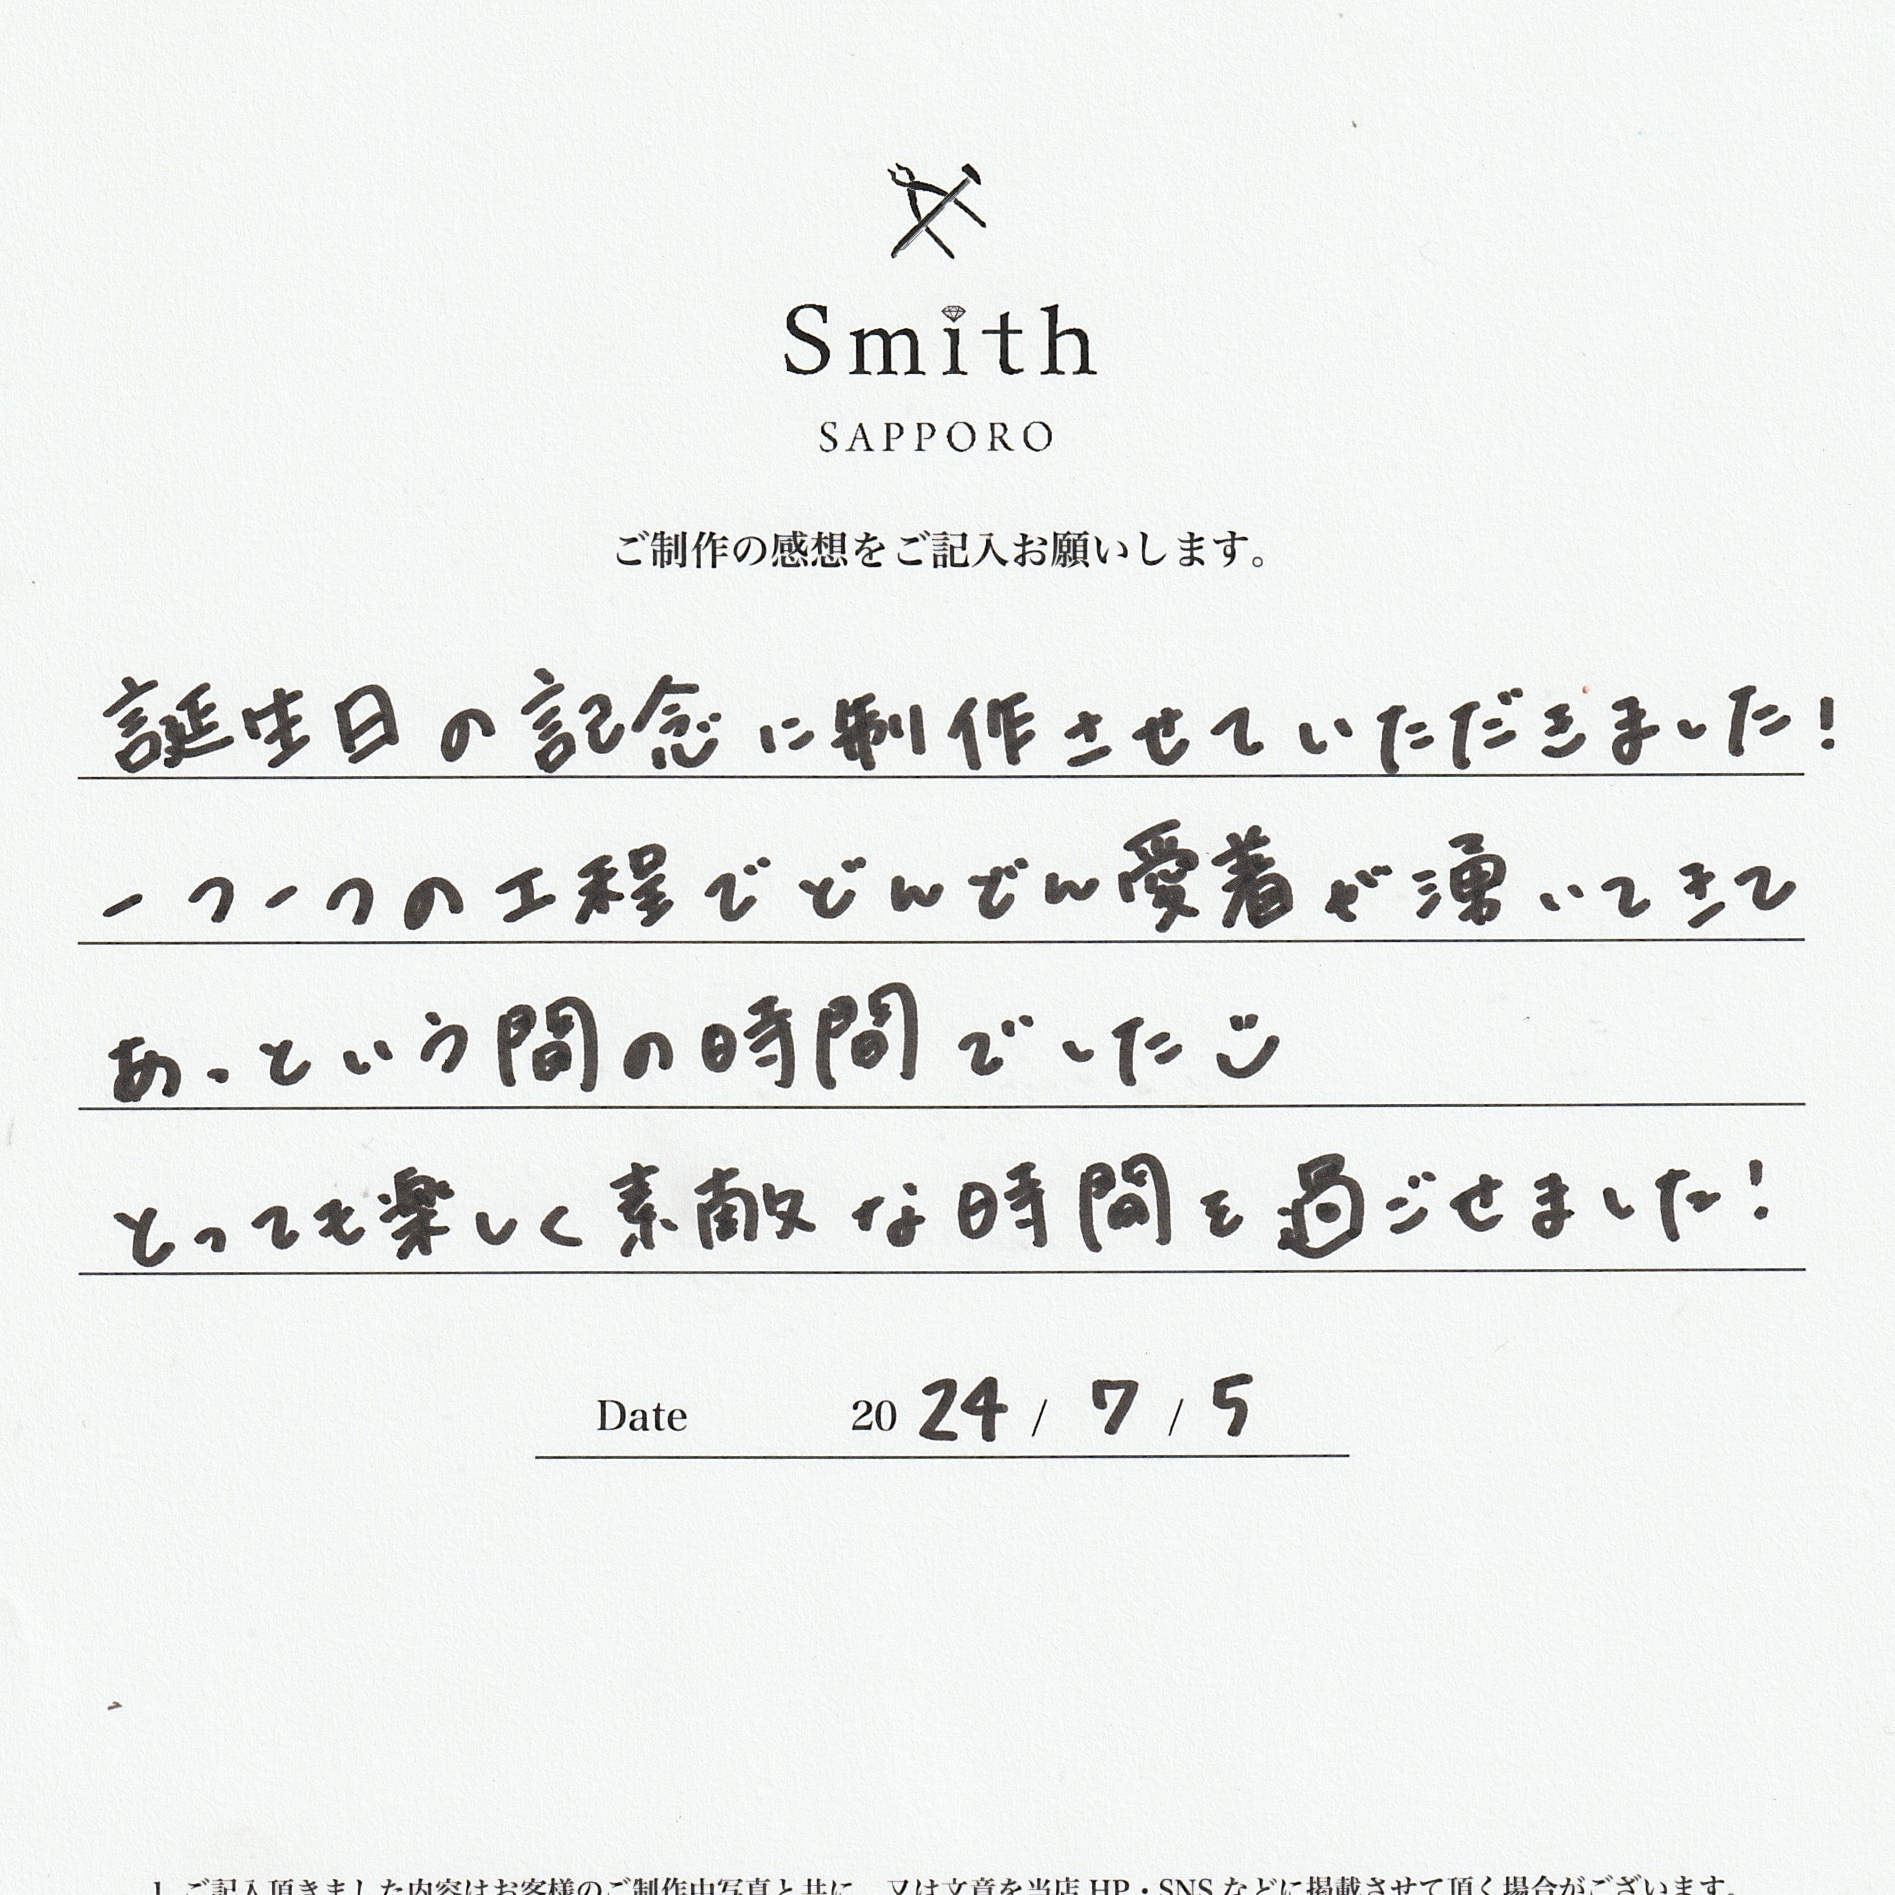 Smith
SAPPORO
ご制作の感想をご記入お願いします。
誕生日の記念に制作させていただきました!
一つ一つの工程でどんどん愛着が湧いてきて
あっという間の時間でした
とっても楽しく素敵な時間を過ごせました!
Date 2024 / 7 / 5
1. ご記入頂きました内容はお客様のご制作中写真と共に、又は文章を当店 HP・SNS などに掲載させて頂く場合がございます。